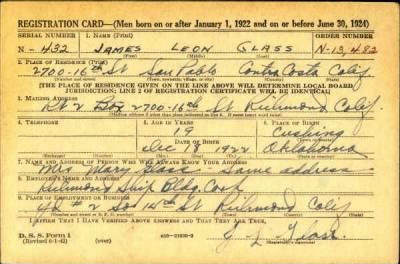 REGISTRATION CARD—(Men born on or after January 1, 1922 and on or before June 30, 1924)
SERIAL NUMBER 1. NAME (Print) ORDER NUMBER
N-432 JAMES LEON GLASS N-13,482
(First) (Middle) (Last)
2. PLACE OF RESIDENCE (Print)
2700-16th St San Pablo Contra Costa Calif
(Number and street) (Town, township, village, or city) (County) (State)
[THE PLACE OF RESIDENCE GIVEN ON THE LINE ABOVE WILL DETERMINE LOCAL BOARD
JURISDICTION; LINE 2 OF REGISTRATION CERTIFICATE WILL BE IDENTICAL]
3. MAILING ADDRESS
Rt 2 Box 2700-16th St Richmond Calif.
4. TELEPHONE 5. AGE IN YEARS 6. PLACE OF BIRTH
19 Cushing
DATE OF BIRTH
Dec 18 1922 Oklahoma
7. NAME AND ADDRESS OF PERSON WHO WILL ALWAYS KNOW YOUR ADDRESS
Mrs Mary Glass - Same address
8. EMPLOYER'S NAME AND ADDRESS
Richmond Ship Bldg. Corp
9. PLACE OF EMPLOYMENT OR BUSINESS
Yd #2 So 14th St Richmond Calif
I AFFIRM THAT I HAVE VERIFIED ABOVE ANSWERS AND THAT THEY ARE TRUE.
D. S. S. Form 1
(Revised 6-1-42) J L Glass
(Registrant's signature)